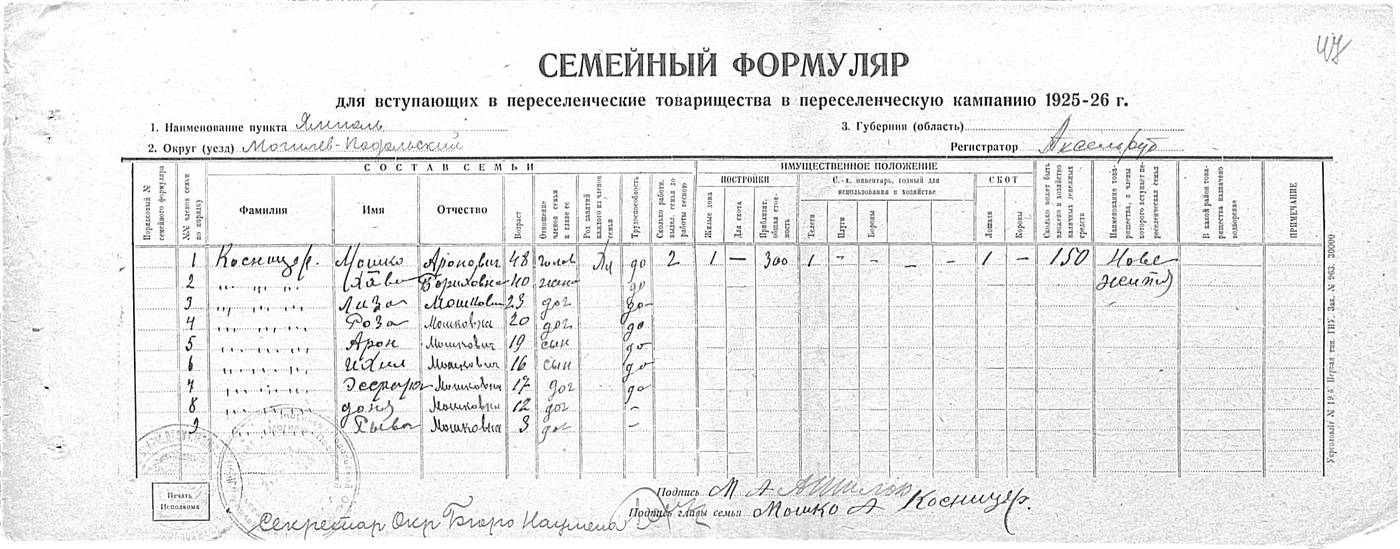 47
СЕМЕЙНЫЙ ФОРМУЛЯР
для вступающих в переселенческие товарищества в переселенческую кампанию 1925-26 г.
1. Наименование пункта Ямполь
3. Губерния (область)
2. Округ (уезд) Могилев-Подольский
Регистратор Аксельруд
СОСТАВ СЕМЬИ
ИМУЩЕСТВЕННОЕ ПОЛОЖЕНИЕ
ПОСТРОЙКИ
С.-х. инвентарь, годный для использования в хозяйстве
СКОТ
Порядковый № семейного формуляра
№№ членов семьи по порядку
Фамилия
Имя
Отчество
Возраст
Отношение членов семьи к главе ее
Род занятий каждого из членов семьи
Трудоспособность
Сколько работн. вышл. семья до работы весною
Жилые дома
Для скота
Приблизит. общая стоимость
Телеги
Плуги
Бороны
Лошади
Коровы
Сколько может быть вложено в хозяйство наличных денежных средств
Наименование товарищества, в члены которого вступает переселенческая семья
В какой район товарищества назначено водворение
ПРИМЕЧАНИЕ
1 Косницер. Мошко Аронович 48 голов до 2 1 — 300 1 – – – – 1 – 150 Нове
2 " " " " Хава Бориховна 40 жена до життя
3 " " " " Лиза Мошковна 23 доч до
4 " " " " Роза Мошковна 20 доч до
5 " " " " Арон Мошкович 19 сын до
6 " " " " Ихил Мошкович 16 сын до
7 " " " " Мошковна 17 доч до
8 " " " " доня Мошковна 12 доч –
9 " " " " Мошковна 3 доч –
Печать Исполкома
Подпись М А
Подпись главы семьи Мошко А Косницер.
Секретар Окр Бюро Нацмена
Укрголовліт № 19.6. Первая тип. ГПУ. Зак. № 963. 30000